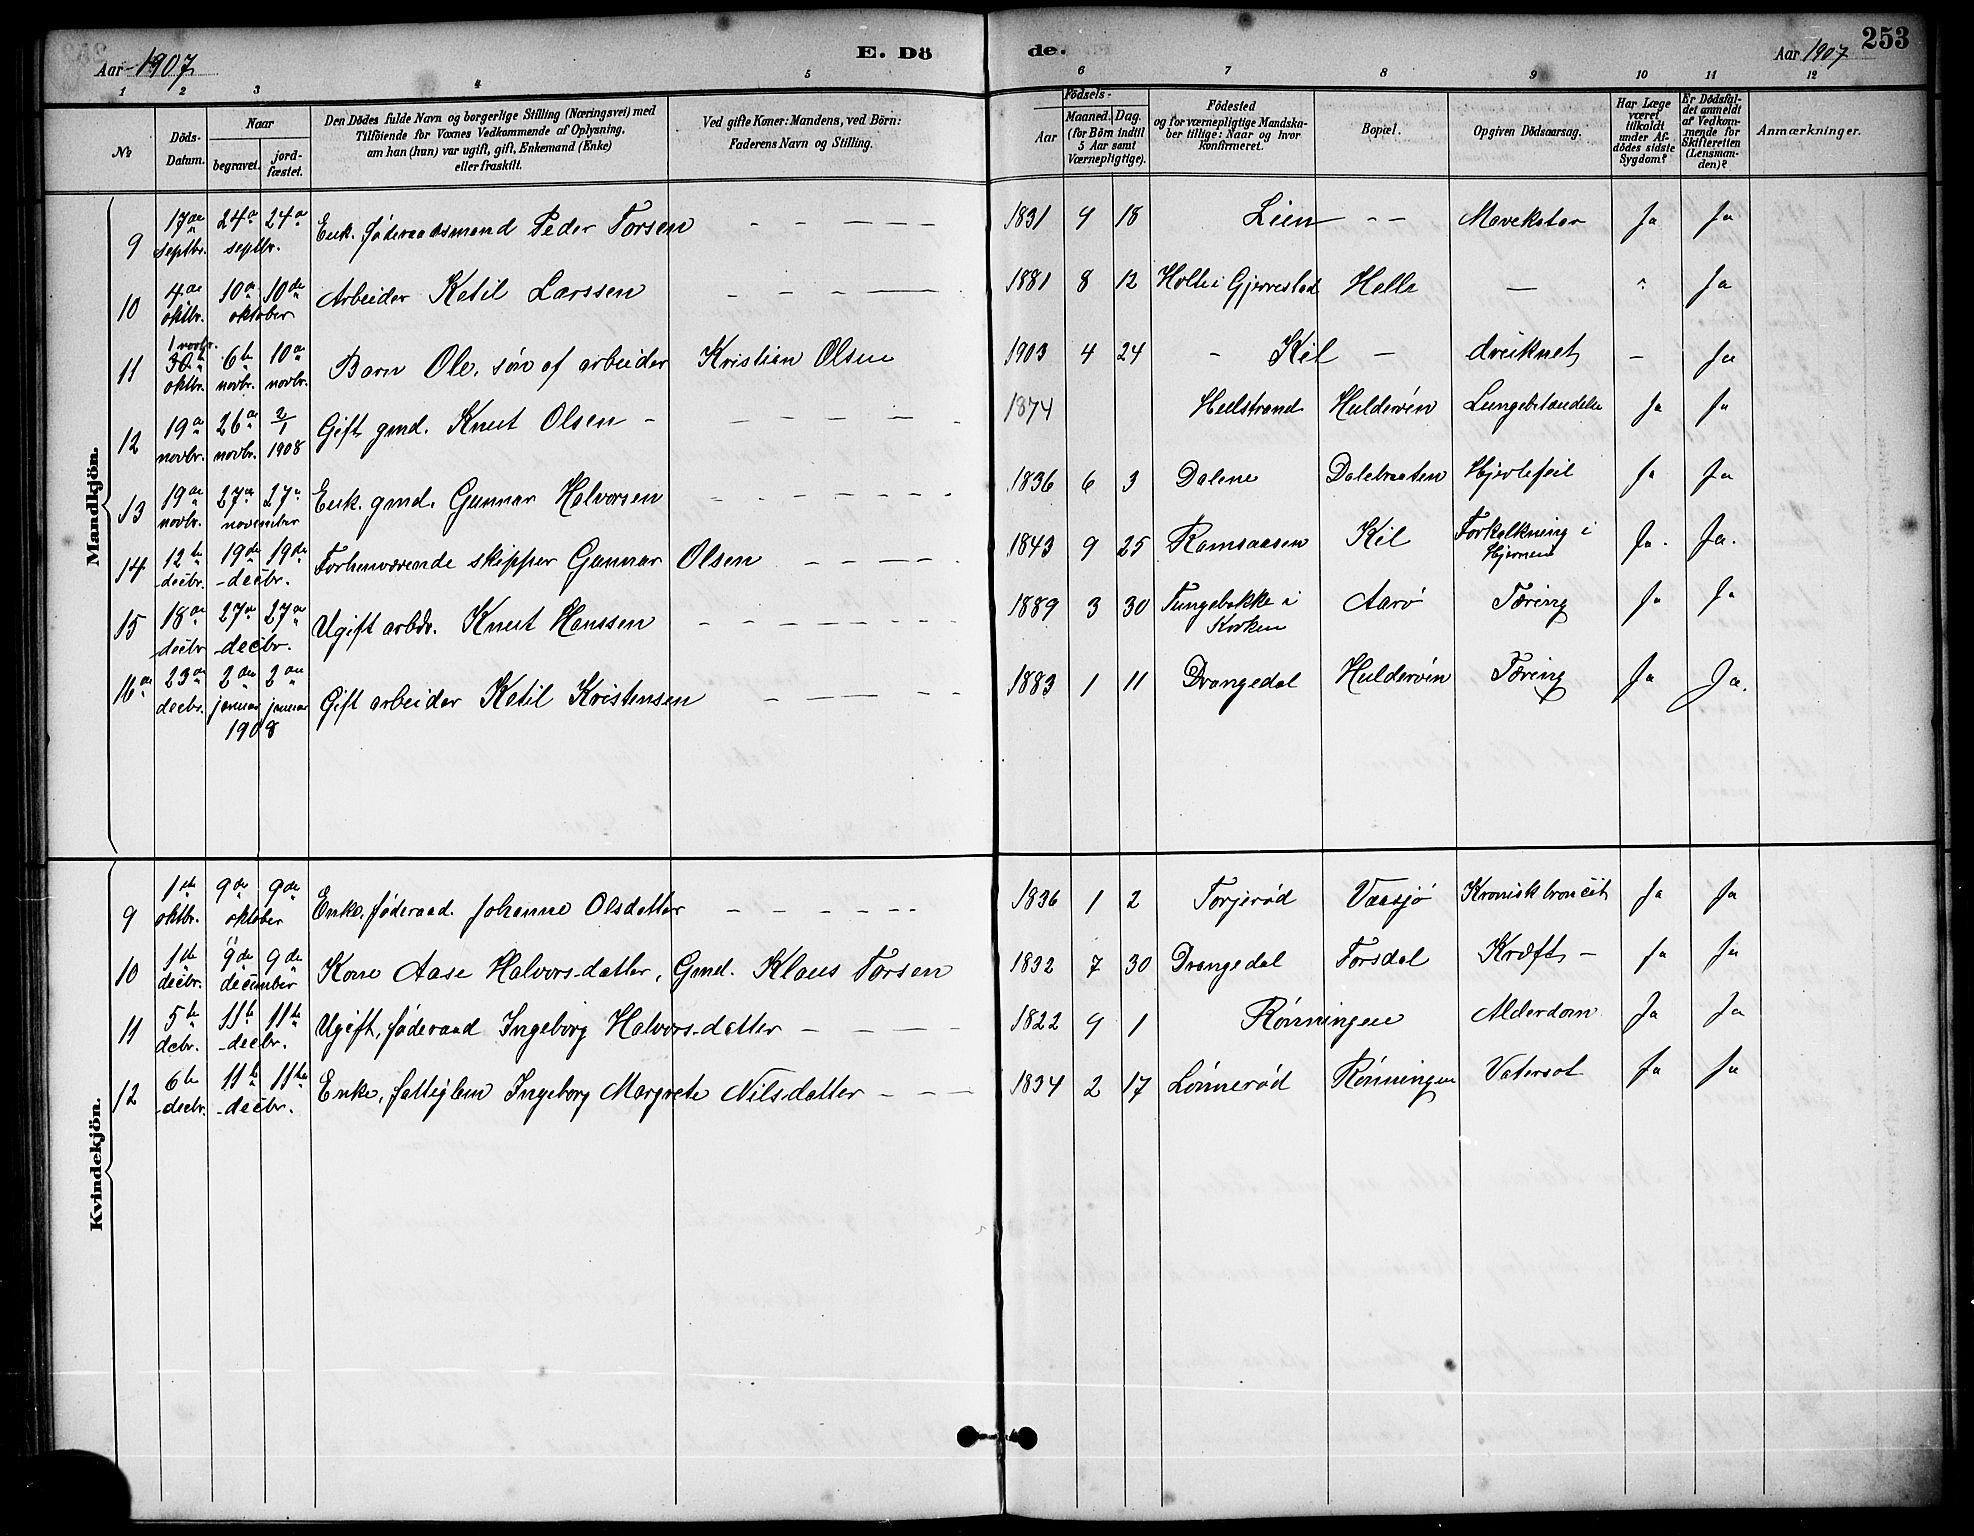 Aar 1907 E. Döde. Aar 1907 253
1 2 3 4 5 6 7 8 9 10 11 12
№ Döds-Datum. Naar begravet. jordfæstet. Den Dödes fulde Navn og borgerlige Stilling (Næringsvei) med Tilföiende for Voxnes Vedkommende af Oplysning, om han (hun) var ugift, gift, Enkemand (Enke) eller fraskilt. Ved gifte Koner: Mandens, ved Börn: Faderens Navn og Stilling. Födsels- Aar Maaned. Dag. (for Börn indtil 5 Aar samt Værnepligtige). Födested og for værnepligtige Mandskaber tillige: Naar og hvor konfirmeret. Bopæl. Opgiven Dödsaarsag. Har Læge været tilkaldt under Afdödes sidste Sygdom? Er Dödsfaldet anmeldt af Vedkommende for Skifteretten (Lensmanden)? Anmærkninger.
Mandkjön.
9 17de septbr. 24de 24de septbr. Enk. föderaadsmand Peder Torsen - - — — — 1831 9 18 Lien - - Mavekatar Ja Ja
10 4de oktbr. 10de 10de oktober Arbeider Ketil Larssen - - - — 1881 8 12 Holte i Gjerrestad Helle — " Ja
11 1 novbr. 30te oktbr. 6te novbr. 10de novbr. Barn Ole, søn af arbeider Kristian Olsen 1903 4 24 - Kil - dreiknet - Ja
12 19de novbr. 26de novbr. 2/1 1908 Gift gmd. Knut Olsen - — — — - 1874 Heilstrand Huldervén Lungebetændelse Ja Ja
13 19de novbr. 27de 27de november Enk. gmd. Gunnar Halvorsen - - - - - - - 1836 6 3 Dalene Dalebraaten Hjertefeil Ja Ja
14 12te decbr. 19de 19de decbr. Forhenværende skipper Gunnar Olsen - - — — - 1843 9 25 Ramsaasen Kil Forkalkning i Hjernen Ja. Ja.
15 18de decbr. 27de 27de decbr. Ugift arbdr. Knut Hanssen - - - - - - - 1889 3 30 Tungebakke i Korken Aarö Tæring Ja Ja
16de 23de decbr. 2den januar 2den januar 1908 Gift arbeider Ketil Kristensen - — — - - 1883 1 11 Drangedal Huldervén Tæring Ja Ja.
Kvindekjön.
9 1ste oktbr. 9de 9de oktober Enke, föderaad. Johanne Olsdatter - - - - - - 1836 1 2 Torjeröd Vaasjö Kronisk broncit Ja Ja
10 1ste decbr. 9de 9de december Kone Aase Halvors-datter, Gmd. Klaus Torsen 1832 7 30 Drangedal Torsdal Kræft - Ja Ja
11 5te dcbr. 11te 11te decbr. Ugift, föderaad Ingeborg Halvors-datter - — — — 1822 9 1 Rønningen Alderdom Ja Ja
12 6te decbr. 11te 11te decbr. Enke, fattiglem Ingeborg Margrete Nilsdatter - - — 1834 2 17 Lönneröd Rønningen Vatersot Ja Ja